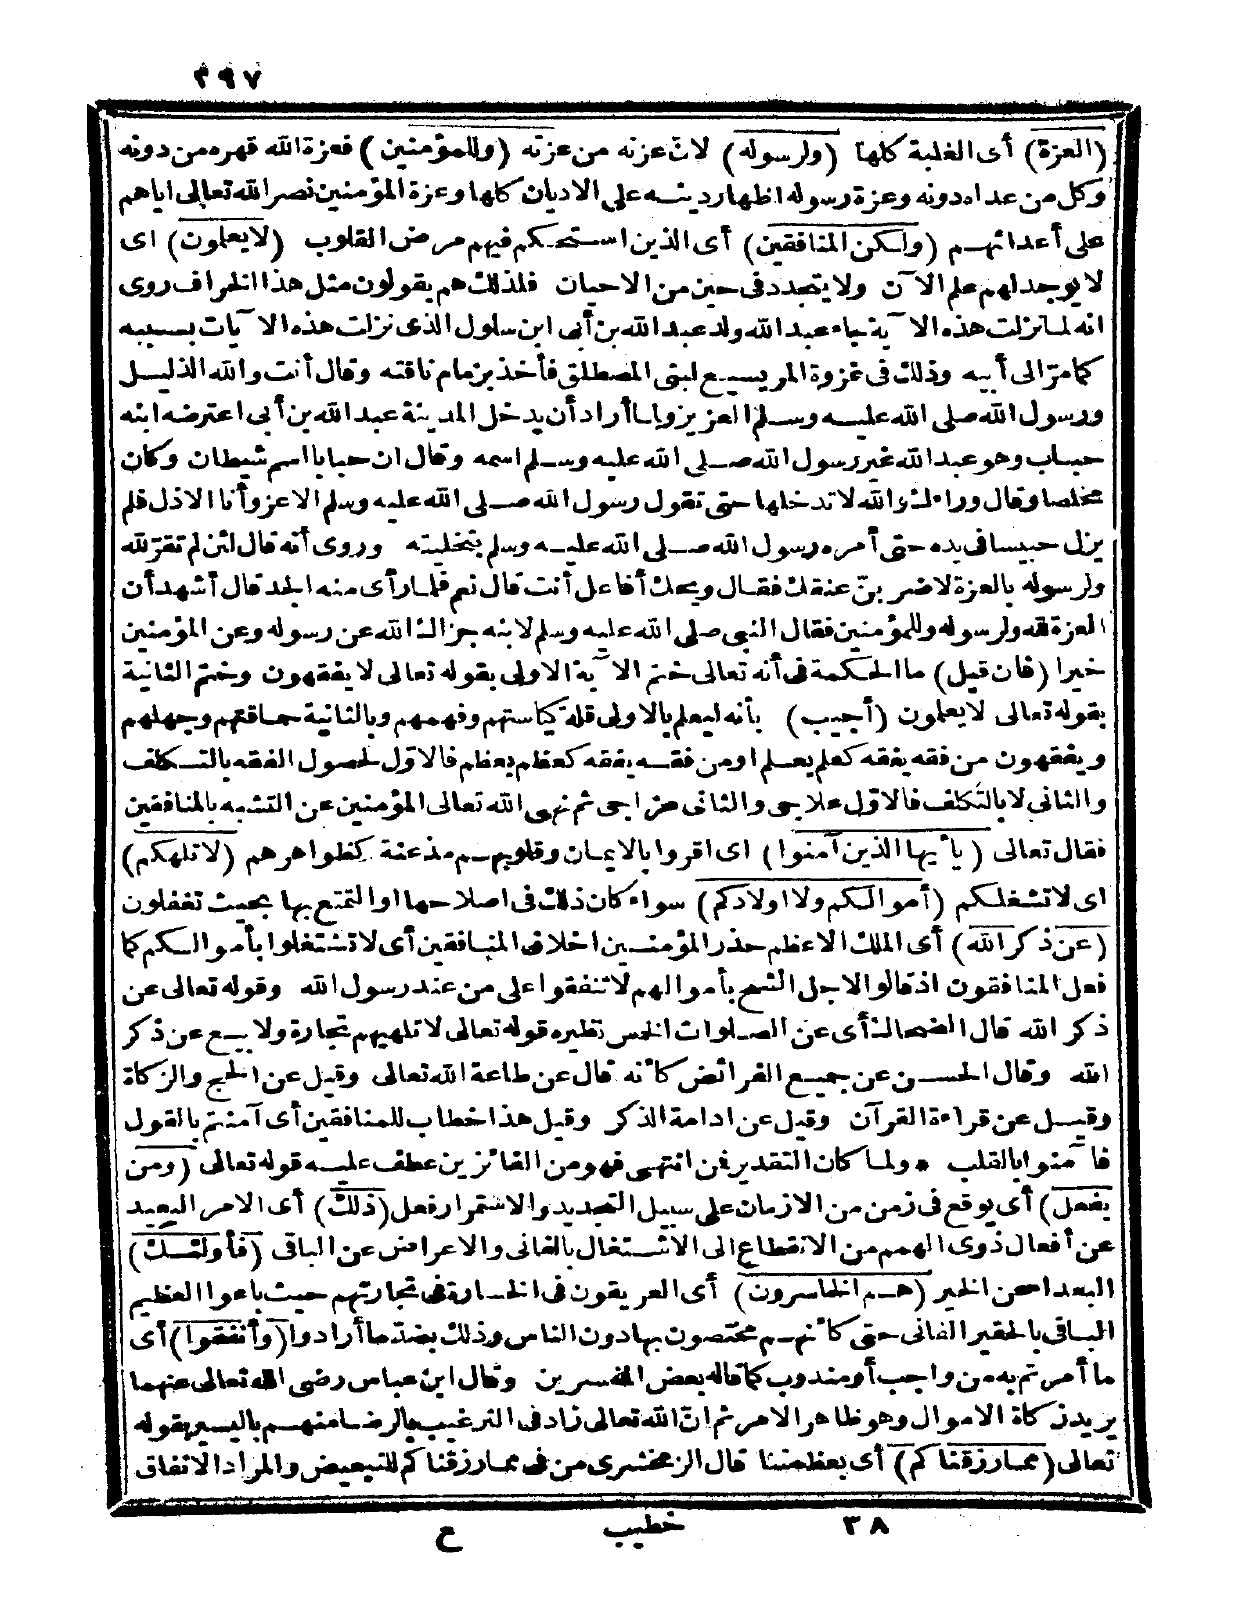 ٢٩٧
(العزة) أى الغلبة كلها (ولرسوله) لانّ عزته من عزته (وللمؤمنين) فعزة الله قهره من دونه
وكل من عداه دونه وعزة رسوله اظهار دينه على الاديان كلها وعزة المؤمنين نصر الله تعالى اياهم
على أعدائهم (ولكن المنافقين) أى الذين استحكم فيهم مرض القلوب (لا يعلمون) اى
لا يوجد لهم علم الآن ولا يتجدد فى حين من الاحيان فلذلك هم يقولون مثل هذا الخراف روى
انه لما نزلت هذه الآية جاء عبد الله ولد عبد الله بن أبى ابن سلول الذى نزلت هذه الآيات بسببه
كما مرّ الى أبيه وذلك فى غزوة المريسيع لبنى المصطلق فأخذ بزمام ناقته وقال أنت والله الذليل
ورسول الله صلى الله عليه وسلم العزيز ولما أراد أن يدخل المدينة عبد الله بن أبى اعترضه ابنه
حباب وهو عبد الله غير رسول الله صلى الله عليه وسلم اسمه وقال ان حبابا اسم شيطان وكان
مخلصا وقال وراءك والله لا تدخلها حتى تقول رسول الله صلى الله عليه وسلم الاعز وأنا الاذل فلم
يزل حبيسا فى يده حتى أمره رسول الله صلى الله عليه وسلم بتخليته وروى أنه قال لئن لم تقرّ لله
ولرسوله بالعزة لاضربنّ عنقك فقال ويحك أفاعل أنت قال نعم فلما رأى منه الجد قال أشهد أن
العزة لله ولرسوله وللمؤمنين فقال النبى صلى الله عليه وسلم لابنه جزاك الله عن رسوله وعن المؤمنين
خيرا (فان قيل) ما الحكمة فى أنه تعالى ختم الآية الاولى بقوله تعالى لا يفقهون وختم الثانية
بقوله تعالى لا يعلمون (أجيب) بأنه ليعلم بالاولى قلة كياستهم وفهمهم وبالثانية حماقتهم وجهلهم
ويفقهون من فقه يفقه كعلم يعلم او من فقه يفقه كعظم يعظم فالاوّل لحصول الفقه بالتكلف
والثانى لا بالتكلف فالاوّل علاجى والثانى مزاجى ثم نهى الله تعالى المؤمنين عن التشبه بالمنافقين
فقال تعالى (يأيها الذين آمنوا) اى اقروا بالايمان وقلوبهم مذعنة كظواهرهم (لا تلهكم)
اى لا تشغلكم (أموالكم ولا اولادكم) سواء كان ذلك فى اصلاحها او التمتع بها بحيث تغفلون
(عن ذكر الله) أى الملك الاعظم حذر المؤمنين اخلاق المنافقين أى لا تشتغلوا بأموالكم كما
فعل المنافقون اذ قالوا لاجل الشح بأموالهم لا تنفقوا على من عند رسول الله وقوله تعالى عن
ذكر الله قال الضحاك أى عن الصلوات الخمس نظيره قوله تعالى لا تلهيهم تجارة ولا بيع عن ذكر
الله وقال الحسن عن جميع الفرائض كأنه قال عن طاعة الله تعالى وقيل عن الحج والزكاة
وقيل عن قراءة القرآن وقيل عن ادامة الذكر وقيل هذا خطاب للمنافقين أى آمنتم بالقول
فآمنوا بالقلب * ولما كان التقدير فمن انتهى فهو من الفائزين عطف عليه قوله تعالى (ومن
يفعل) أى يوقع فى زمن من الازمان على سبيل التجديد والاستمرار فعل (ذلك) أى الامر البعيد
عن أفعال ذوى الهمم من الانقطاع الى الاشتغال بالفانى والاعراض عن الباقى (فأولئك)
البعداء عن الخير (هم الخاسرون) أى العريقون فى الخسارة فى تجارتهم حيث باعوا العظيم
الباقى بالحقير الفانى حتى كأنهم مختصون بها دون الناس وذلك بضدّ ما أرادوا (وأنفقوا) أى
ما أمرتم به من واجب أو مندوب كما قاله بعض المفسرين وقال ابن عباس رضى الله تعالى عنهما
يريد زكاة الاموال وهو ظاهر الامر ثم انّ الله تعالى زاد فى الترغيب بالرضا منهم باليسير بقوله
تعالى (مما رزقناكم) أى بعظمتنا قال الزمخشرى من فى مما رزقناكم للتبعيض والمراد الانفاق
٣٨ خطيب ع